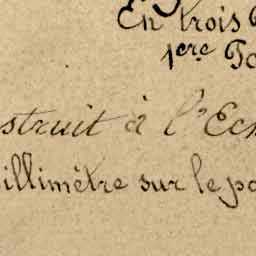 En trois
1ere
struit à l'Ech
illimètre sur le po